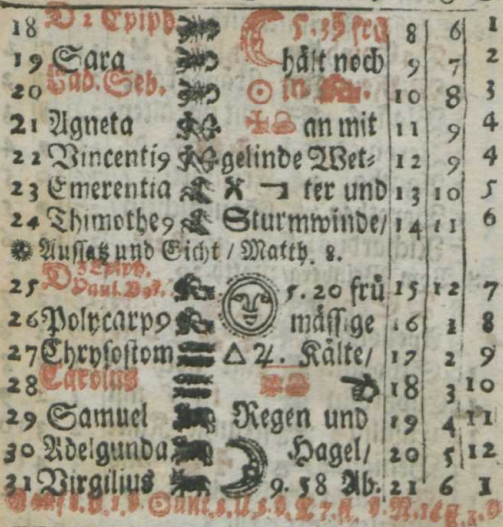 18 D 2 Epiph 5. 35 frü 8 6 1
19 Sara hält noch 9 7 2
20 Fab. Seb. ☉ in 10 8 3
21 Agneta an mit 11 9 4
22 Vincenti9 gelinde Wet⸗ 12 9 4
23 Emerentia ter und 13 10 5
24 Thimothe9 Sturmwinde/ 14 11 6
Aussatz und Gicht / Matth. 8.
25 D 3 Epiph. Paul. Bek. 5. 20 frü 15 12 7
26 Polycarp9 mässige 16 1 8
27 Chrysostom △ ♃. Kälte/ 17 2 9
28 Carolus 18 3 10
29 Samuel Regen und 19 4 11
30 Adelgunda Hagel/ 20 5 12
31 Virgilius 9. 58 Ab. 21 6 1